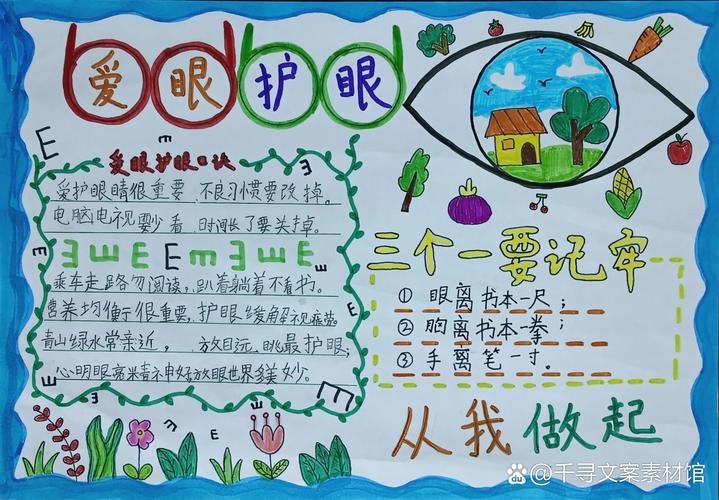 爱眼护眼
爱眼护眼口诀
爱护眼睛很重要 不良习惯要改掉。
电脑电视要少看 时间长了要关掉。
乘车走路勿阅读,趴着躺着不看书。
营养均衡很重要,护眼缓解视疲劳。
青山绿水常亲近,放目远眺最护眼;
心明眼亮精神好放眼世界多美妙。
三个一要记牢
① 眼离书本一尺;
② 胸离书本一拳;
③ 手离笔一寸。
从我做起
Baidu @千寻文案素材馆